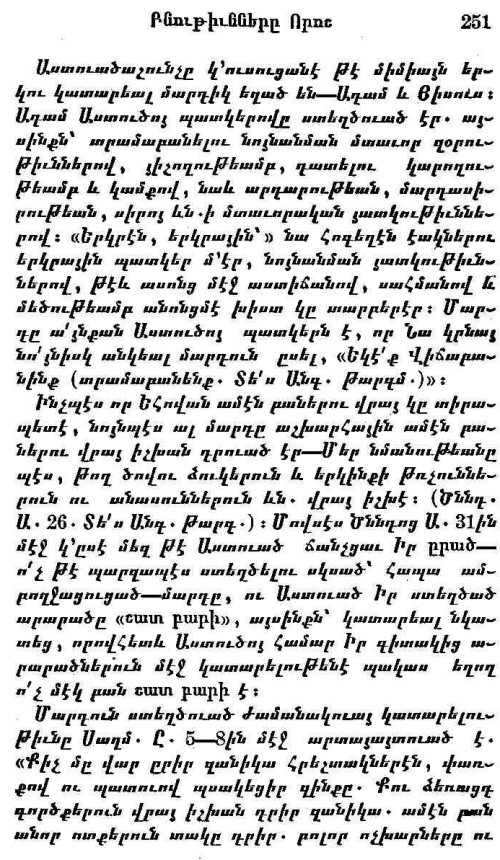 Բնութիւնները Որոշ 251
Աստուածաշունչը կ՚ուսուցանէ թէ միմիայն եր-
կու կատարեալ մարդիկ եղած են—Ադամ և Յիսուս։
Ադամ Աստուծոյ պատկերովը ստեղծուած էր. այ-
սինքն՝ տրամաբանելու նոյնանման մտաւոր զօրու-
թիւններով, յիշողութեամբ, դատելու կարողու-
թեամբ և կամքով, նաև արդարութեան, մարդասի-
րութեան, սիրոյ ևն.ի մտաւորական յատկութիւննե-
րով։ «Երկրէն, երկրային՝» նա Հոգեղէն էակներու
երկրային պատկեր մ՚էր, նոյնանման յատկութիւն-
ներով, թէև ասոնց մէջ աստիճանով, սահմանով և
մեծութեամբ անոնցմէ խիստ կը տարբերէր։ Մար-
դը ա՛յնքան Աստուծոյ պատկերն է, որ Նա կրնայ
նո՛յնիսկ անկեալ մարդուն ըսել, «Եկէ՛ք Վիճաբա-
նինք (տրամաբանենք. Տե՛ս Անգ. Թարգմ.)»։
Ինչպէս որ Եհովան ամէն բաներու վրայ կը տիրա-
պետէ, նոյնպէս ալ մարդը աշխարհային ամէն բա-
ներու վրայ իշխան դրուած էր—Մեր նմանութեանը
պէս, թող ծովու ձուկերուն և երկինքի թռչուննե-
րուն ու անասուններուն ևն. վրայ իշխէ։ (Ծննդ.
Ա. 26. Տե՛ս Անգ. Թարգ.)։ Մովսէս Ծննդոց Ա. 31ին
մէջ կ՚ըսէ մեզ թէ Աստուած ճանչցաւ Իր ըրած—
ո՛չ թէ պարզապէս ստեղծելու սկսած՝ Հապա ամ-
բողջացուցած—մարդը, ու Աստուած Իր ստեղծած
արարածը «շատ բարի», այսինքն՝ կատարեալ նկա-
տեց, որովհետև Աստուծոյ Համար Իր գիտակից ա-
րարածներուն մէջ կատարելութենէ պակաս եղող
ո՛չ մէկ բան շատ բարի է։
Մարդուն ստեղծուած ժամանակուայ կատարելու-
թիւնը Սաղմ. Ը. 5—8ին մէջ արտայայտուած է.
«Քիչ մը վար ըրիր զանիկա Հրեշտակներէն, փառ-
քով ու պատուով պսակեցիր զինքը. Քու ձեռացդ
գործքերուն վրայ իշխան դրիր զանիկա. ամէն բան
անոր ոտքերուն տակը դրիր. բոլոր ոչխարները ու